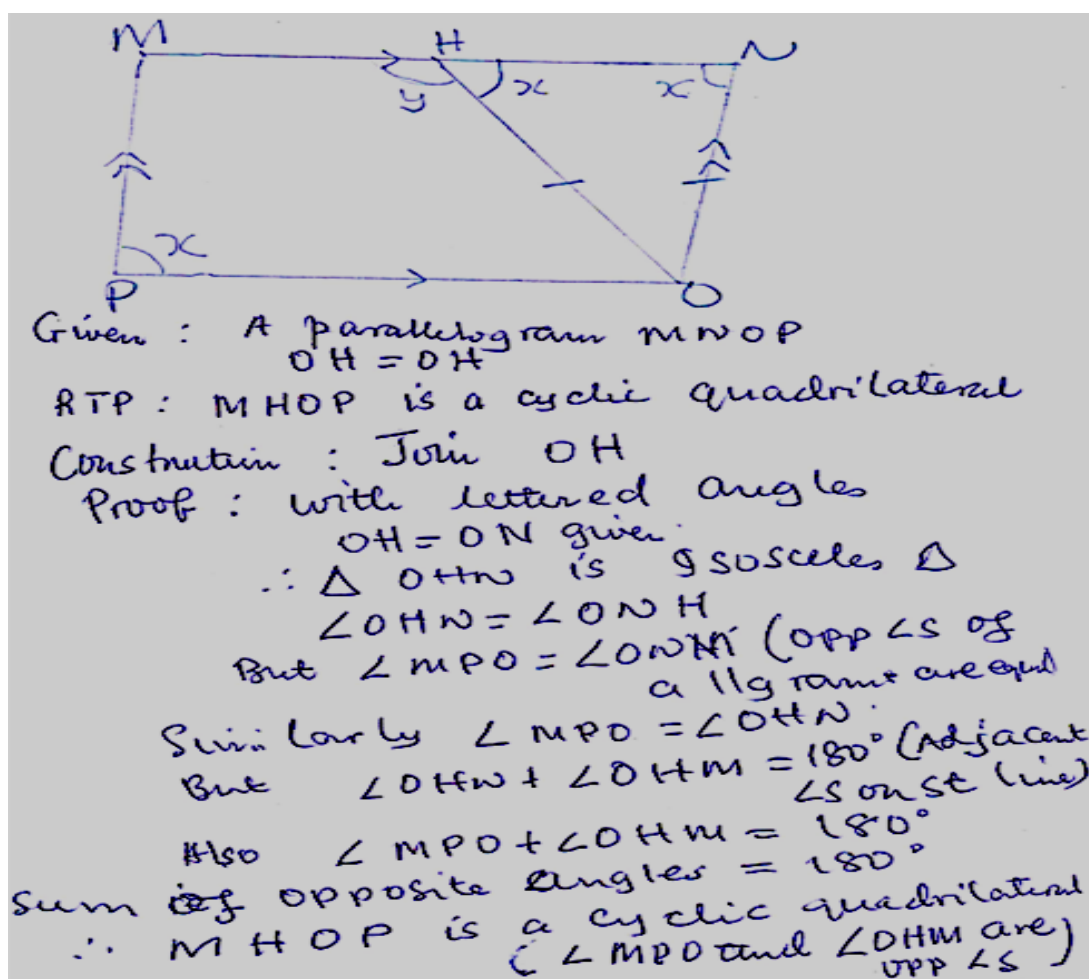 M H N
y x x
x
P O
Given : A parallelogram MNOP
OH = OH
RTP : MHOP is a cyclic quadrilateral
Constrution : Join OH
Proof : with lettered angles
OH = ON given.
∴ Δ OHN is Isosceles Δ
∠OHN = ∠ONH
But ∠MPO = ∠ONM (opp ∠s of
a ||gram are equal
Similarly ∠MPO = ∠OHN.
But ∠OHN + ∠OHM = 180° (Adjacent
∠s on st line)
Also ∠MPO + ∠OHM = 180°
Sum of opposite angles = 180°
∴ MHOP is a cyclic quadrilateral
(∠MPO and ∠OHM are)
opp ∠s